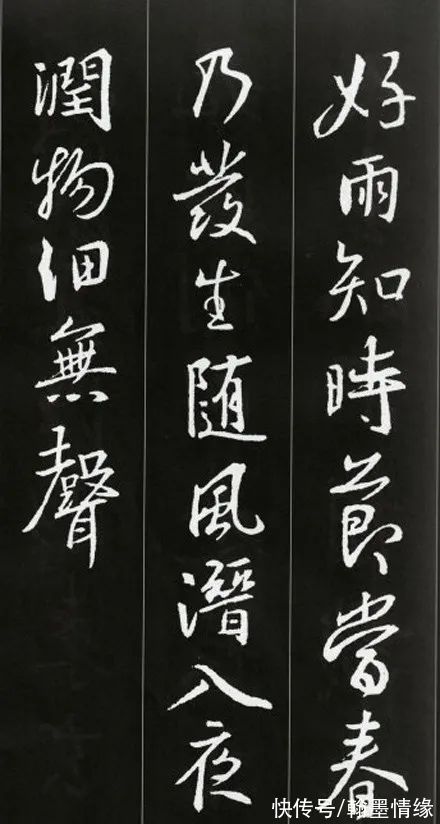 好雨知時節當春
乃發生随風潛入夜
潤物細無聲
快传号/翰墨情缘